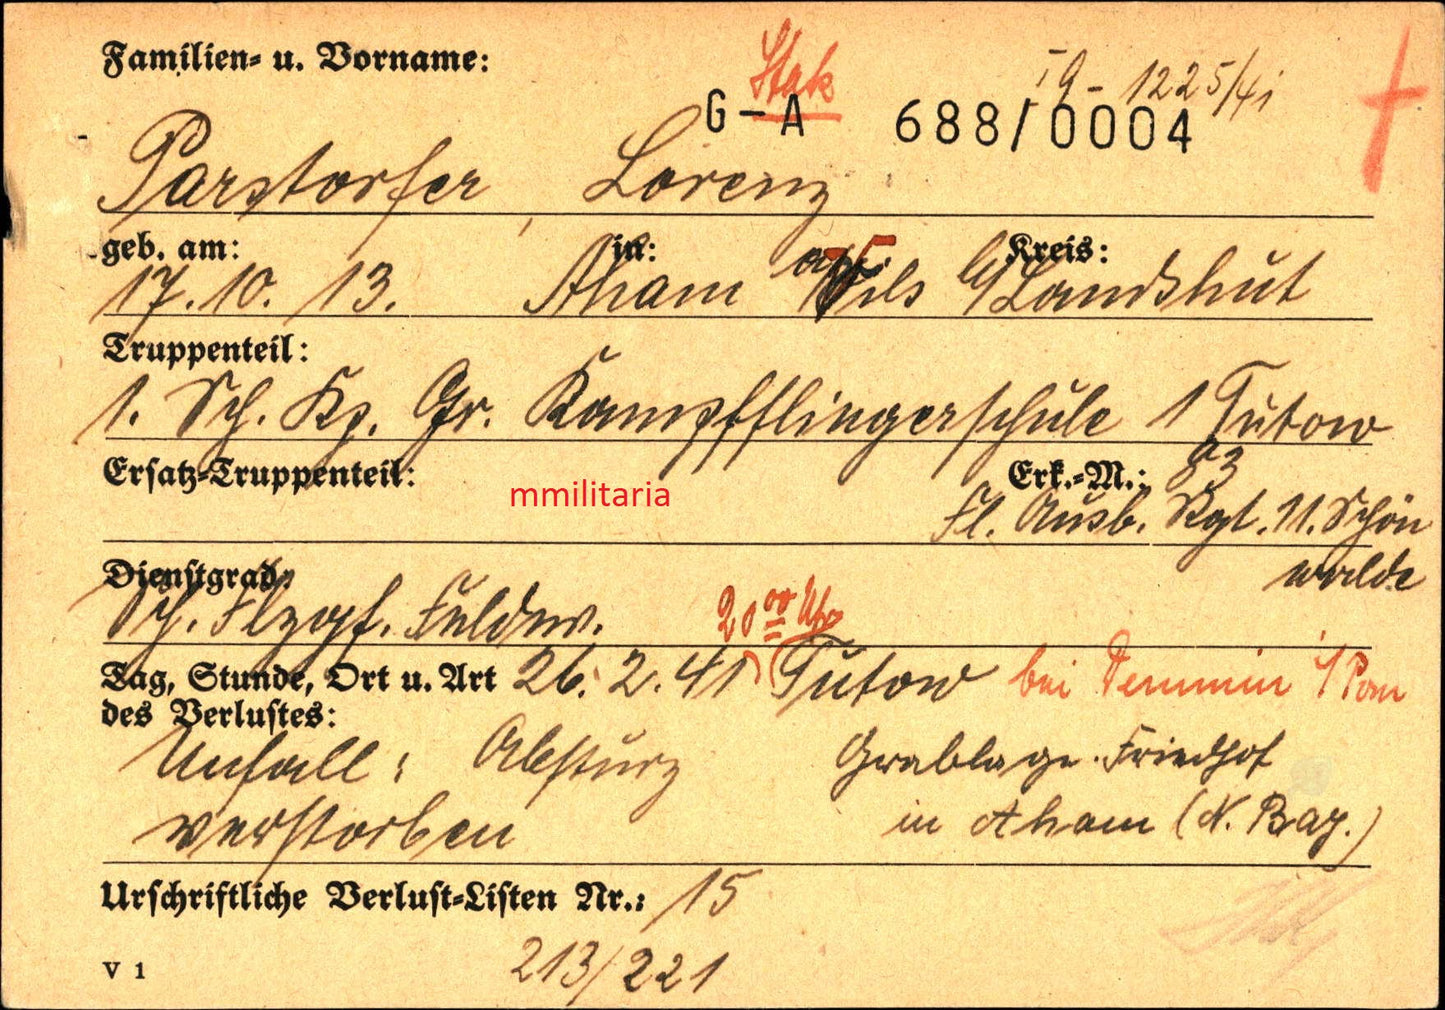 Familien- u. Vorname:
Stak
19-1225/41
G-A 688/0004
Parstorfer, Lorenz
geb. am: in: Kreis:
17. 10. 13. Aham a/Vils Landshut
Truppenteil:
1. Sch. Kp. Gr. Kampffliegerschule 1 Tutow
Ersatz-Truppenteil: Erk.-M.: 83
mmilitaria
Fl. Ausb. Rgt. 11. Schön
walde
Dienstgrad:
Feldw.
20 00 Uhr
Tag, Stunde, Ort u. Art 26. 2. 41 Tutow bei Demmin i/Pom
des Verlustes:
Unfall: Absturz Grablage. Friedhof
verstorben in Aham (N. Bay.)
Urschriftliche Verlust-Listen Nr.: 15
V 1 213/221